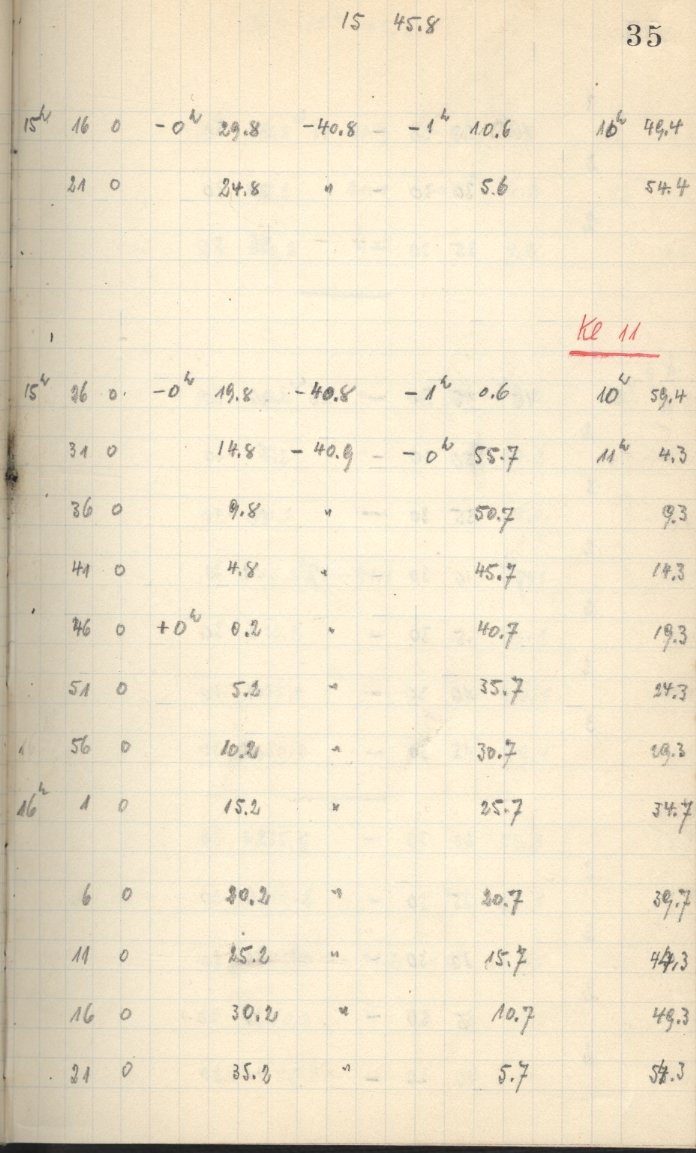 15 45.8
35
15h 16 0 -0h 29.8 -40.8 -1h 10.6 10h 49.4
21 0 24.8 " 5.6 54.4
Kl 11
15h 26 0 -0h 19.8 -40.8 -1h 0.6 10h 59.4
31 0 14.8 -40.9 -0h 55.7 11h 4.3
36 0 9.8 " 50.7 9.3
41 0 4.8 " 45.7 14.3
46 0 +0h 0.2 " 40.7 19.3
51 0 5.2 " 35.7 24.3
56 0 10.2 " 30.7 29.3
16h 1 0 15.2 " 25.7 34.7
6 0 20.2 " 20.7 39.7
11 0 25.2 " 15.7 44.3
16 0 30.2 " 10.7 49.3
21 0 35.2 " 5.7 54.3